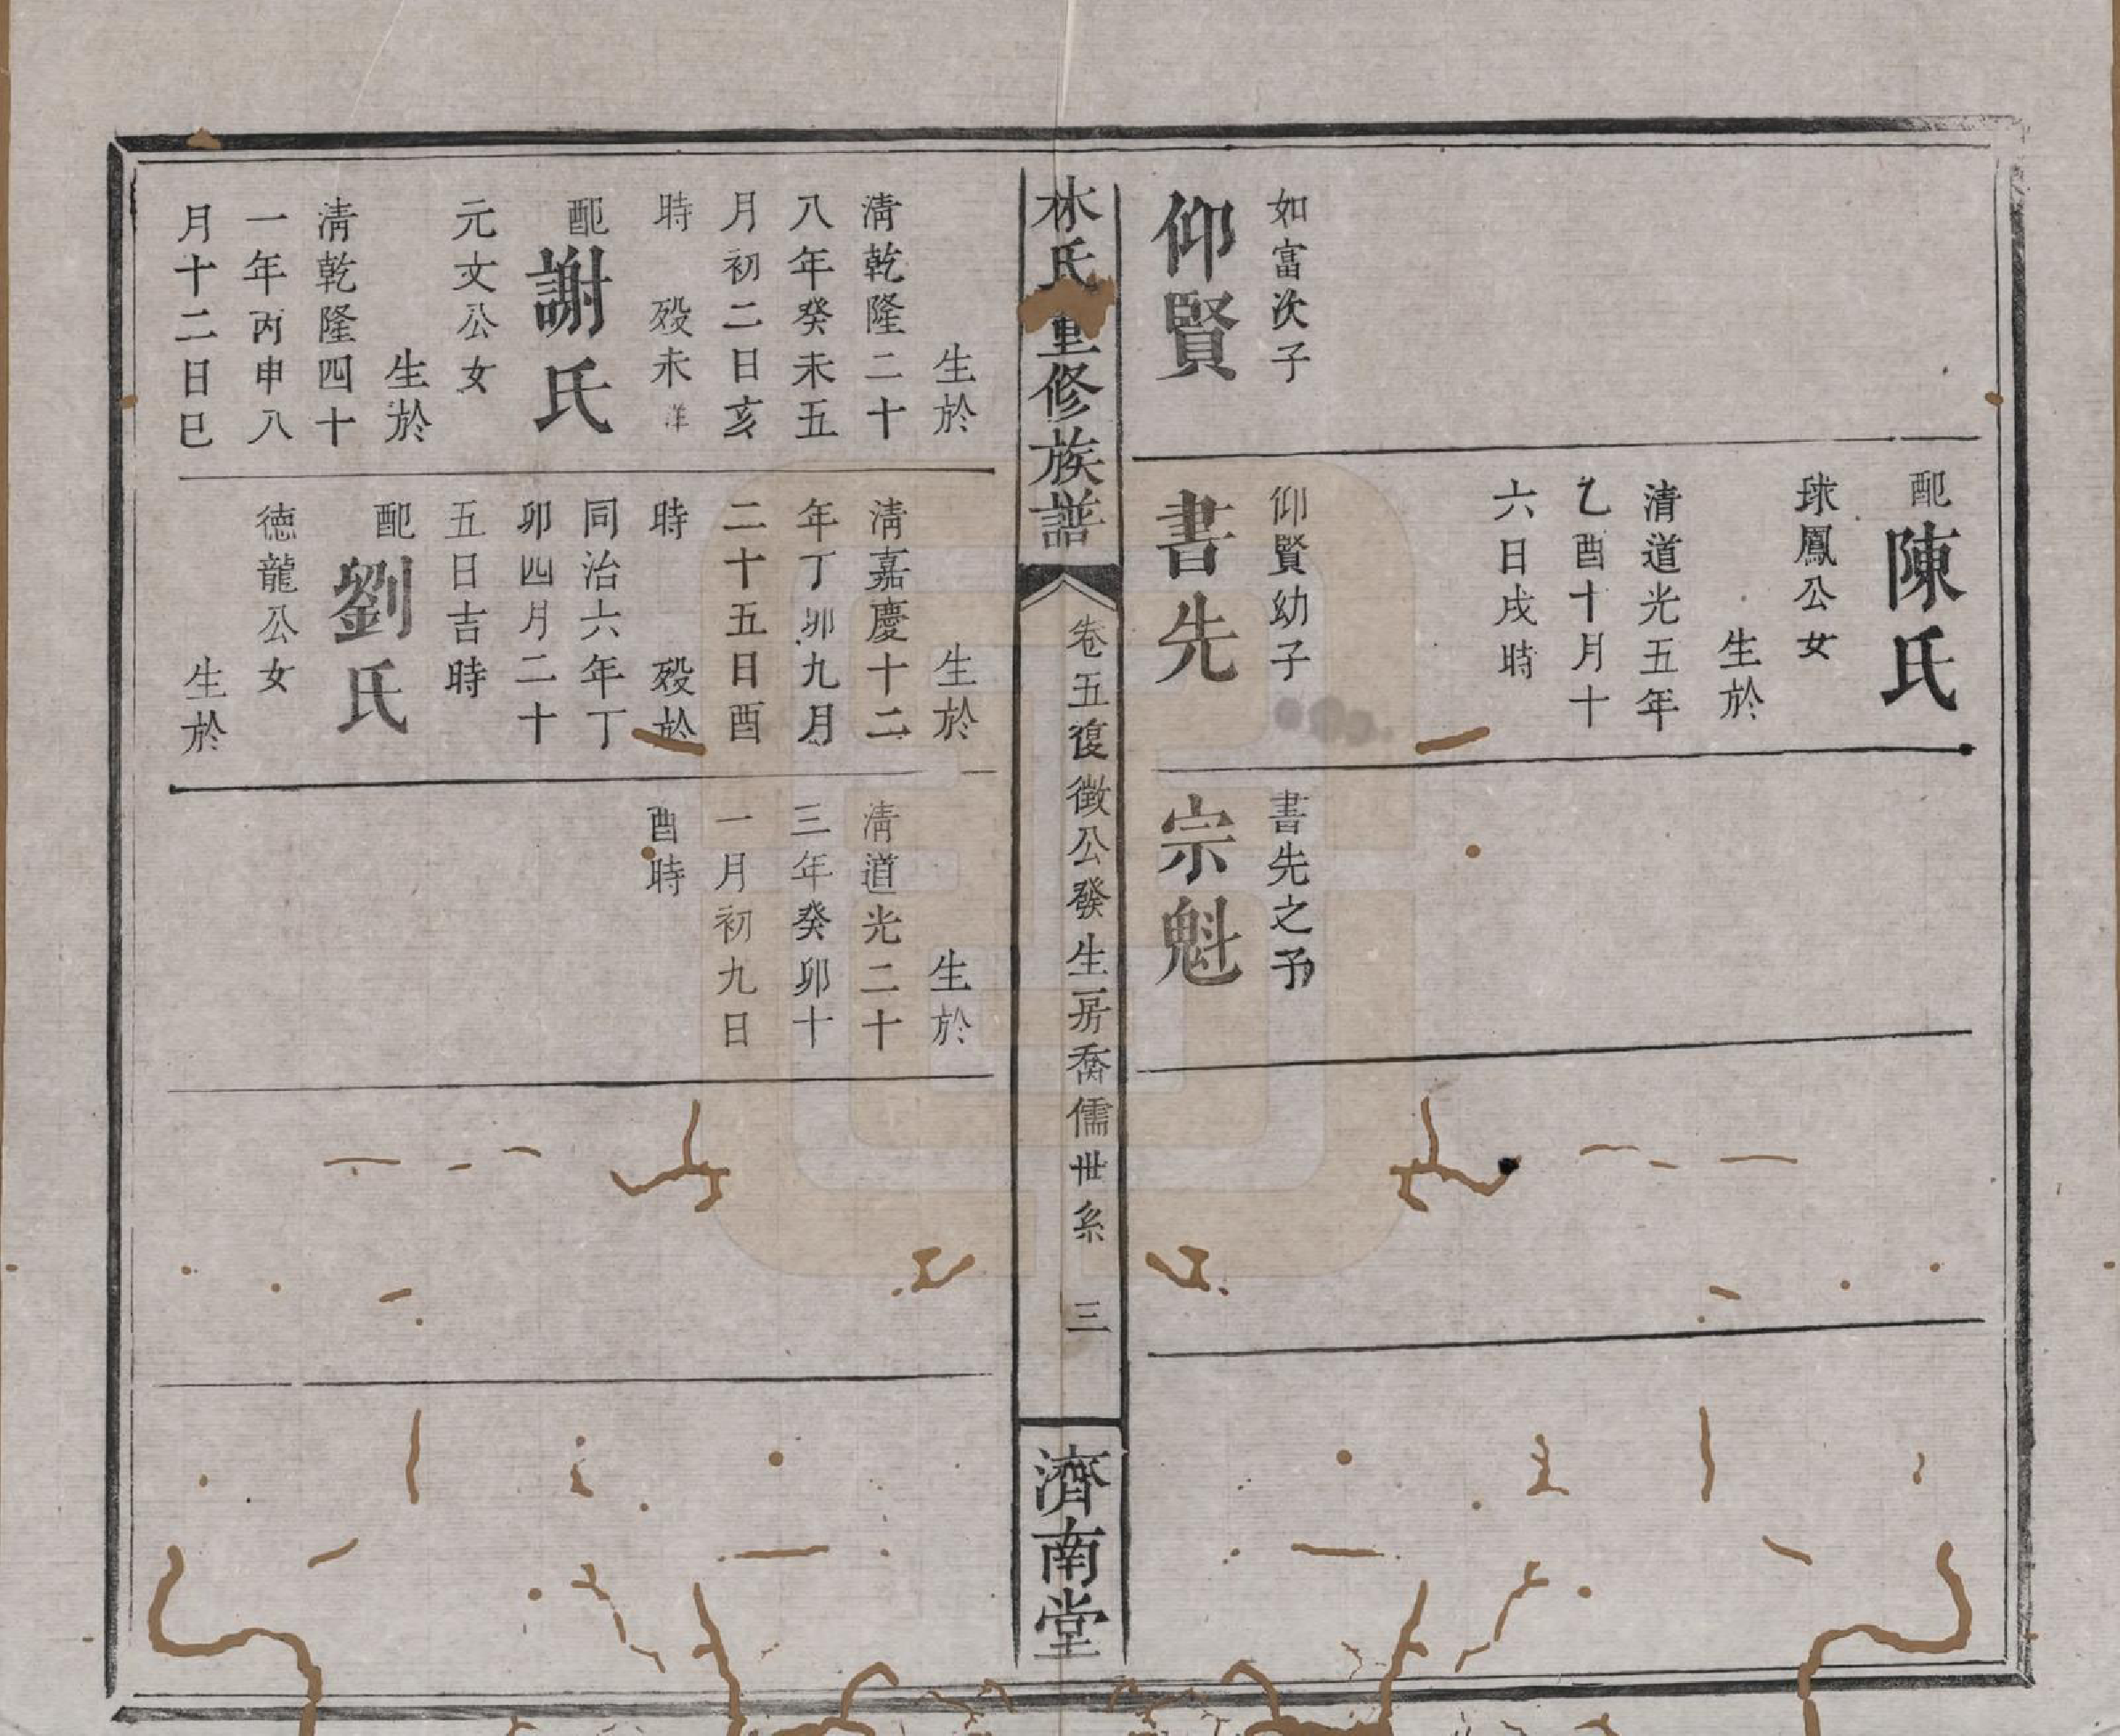 如富次子
仰賢
配陳氏
球鳳公女
生於
清道光五年
乙酉十月十
六日戌時
仰賢幼子
書先
書先之子
宗魁
林氏重修族譜
卷五復徵公發生房喬儒世系 三
濟南堂
生於
清乾隆二十
八年癸未五
月初二日亥
時 歿未詳
配謝氏
元文公女
生於
清乾隆四十
一年丙申八
月十二日巳
生於
清嘉慶十二
年丁卯九月
二十五日酉
時 歿於
同治六年丁
卯四月二十
五日吉時
配劉氏
德龍公女
生於
生於
清道光二十
三年癸卯十
一月初九日
酉時